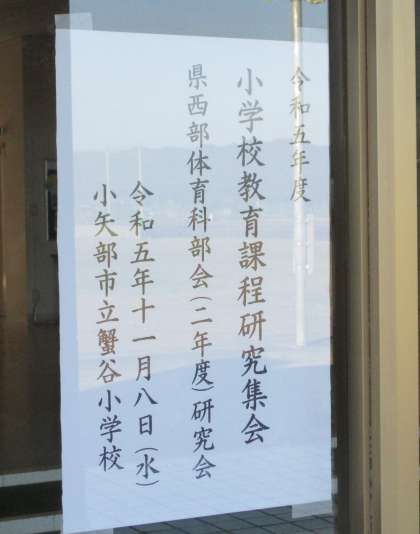 令和五年度
小学校教育課程研究集会
県西部体育科部会(二年度)研究会
令和五年十一月八日(水)
小矢部市立蟹谷小学校